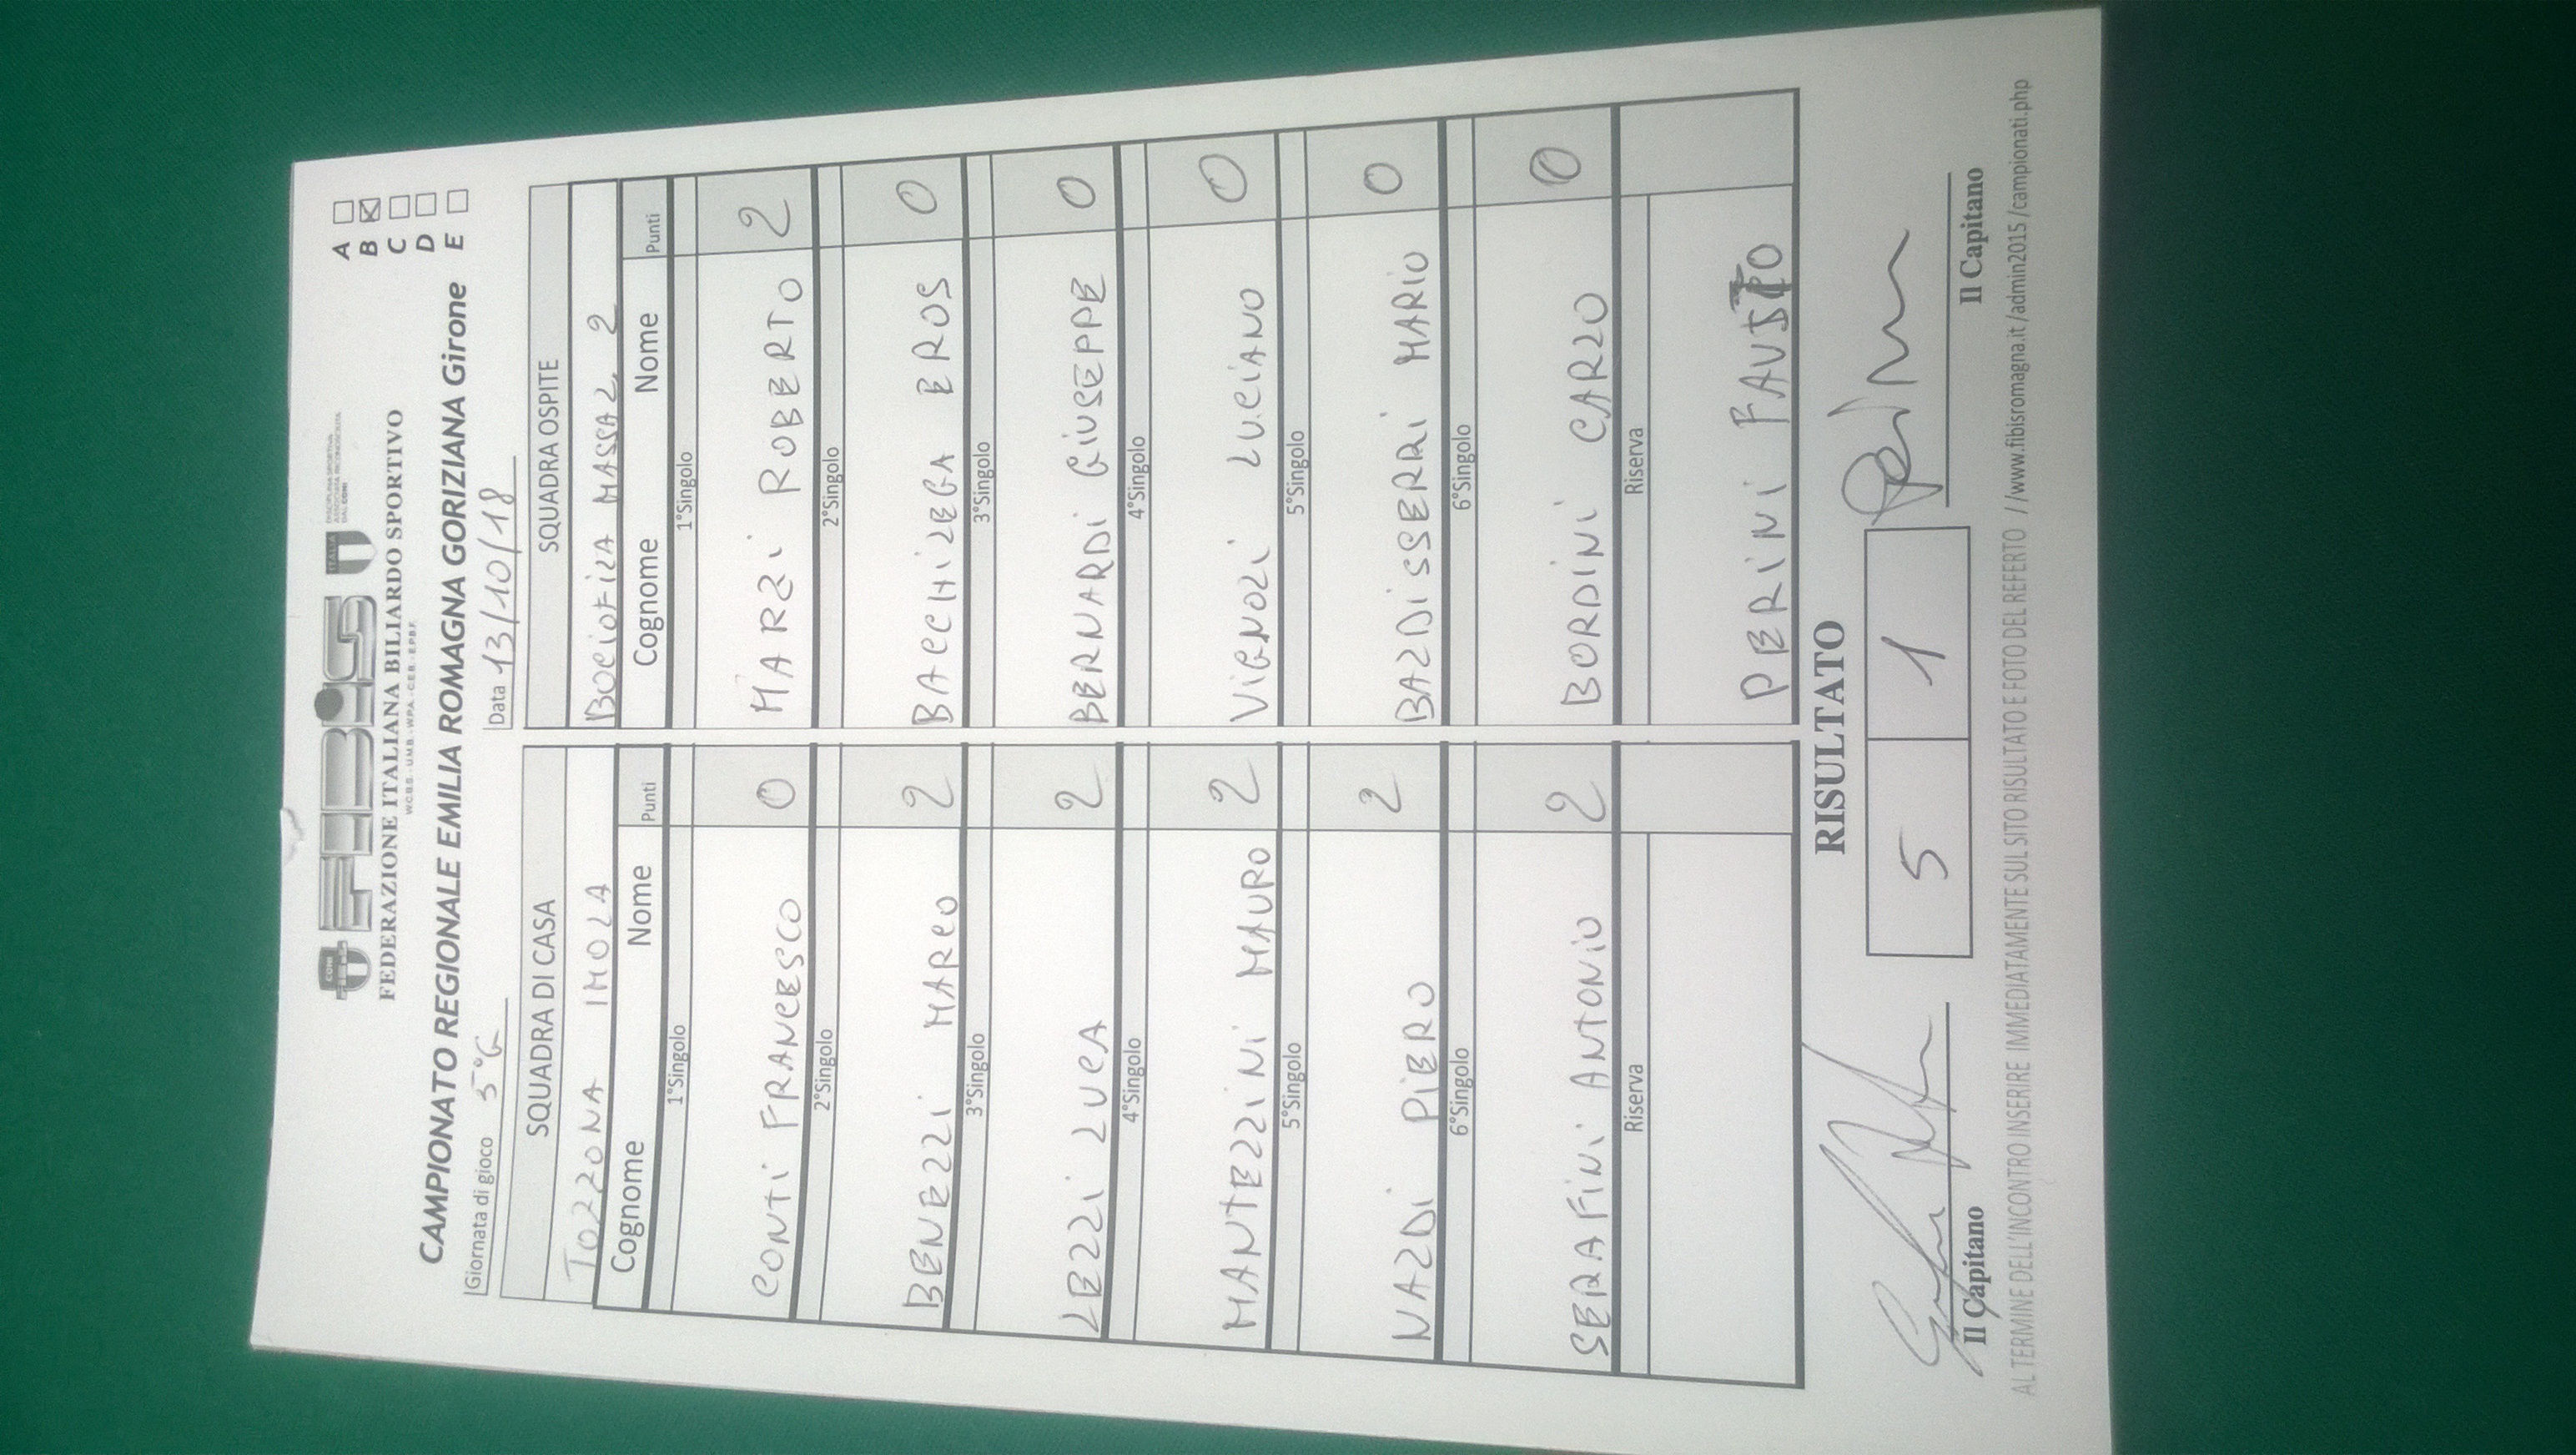 CONI
FIBIS
ITALIA
FEDERAZIONE ITALIANA BILIARDO SPORTIVO
CAMPIONATO REGIONALE EMILIA ROMAGNA GORIZIANA Girone
A
B
C
D
E
Giornata di gioco 5°G
Data 13/10/18
SQUADRA DI CASA SQUADRA OSPITE
TOZZONA IMOLA BOCIOFILA MASSAL. 2
Cognome Nome Punti Cognome Nome Punti
1°Singolo 1°Singolo
CONTI FRANCESCO 0 MARZI ROBERTO 2
2°Singolo 2°Singolo
BENEZZI MARCO 2 BACCHILEGA EROS 0
3°Singolo 3°Singolo
LEZZI LUCA 2 BERNARDI GIUSEPPE 0
4°Singolo 4°Singolo
MANTEZZINI MAURO 2 VIGNOLI LUCIANO 0
5°Singolo 5°Singolo
NALDI PIERO 2 BALDISSERRI MARIO 0
6°Singolo 6°Singolo
SERAFINI ANTONIO 2 BORDINI CARLO 0
Riserva Riserva
PERINI FAUSTO
RISULTATO
5 1
Il Capitano Il Capitano
AL TERMINE DELL'INCONTRO INSERIRE IMMEDIATAMENTE SUL SITO RISULTATO E FOTO DEL REFERTO //www.fibisromagna.it/admin2015/campionati.php